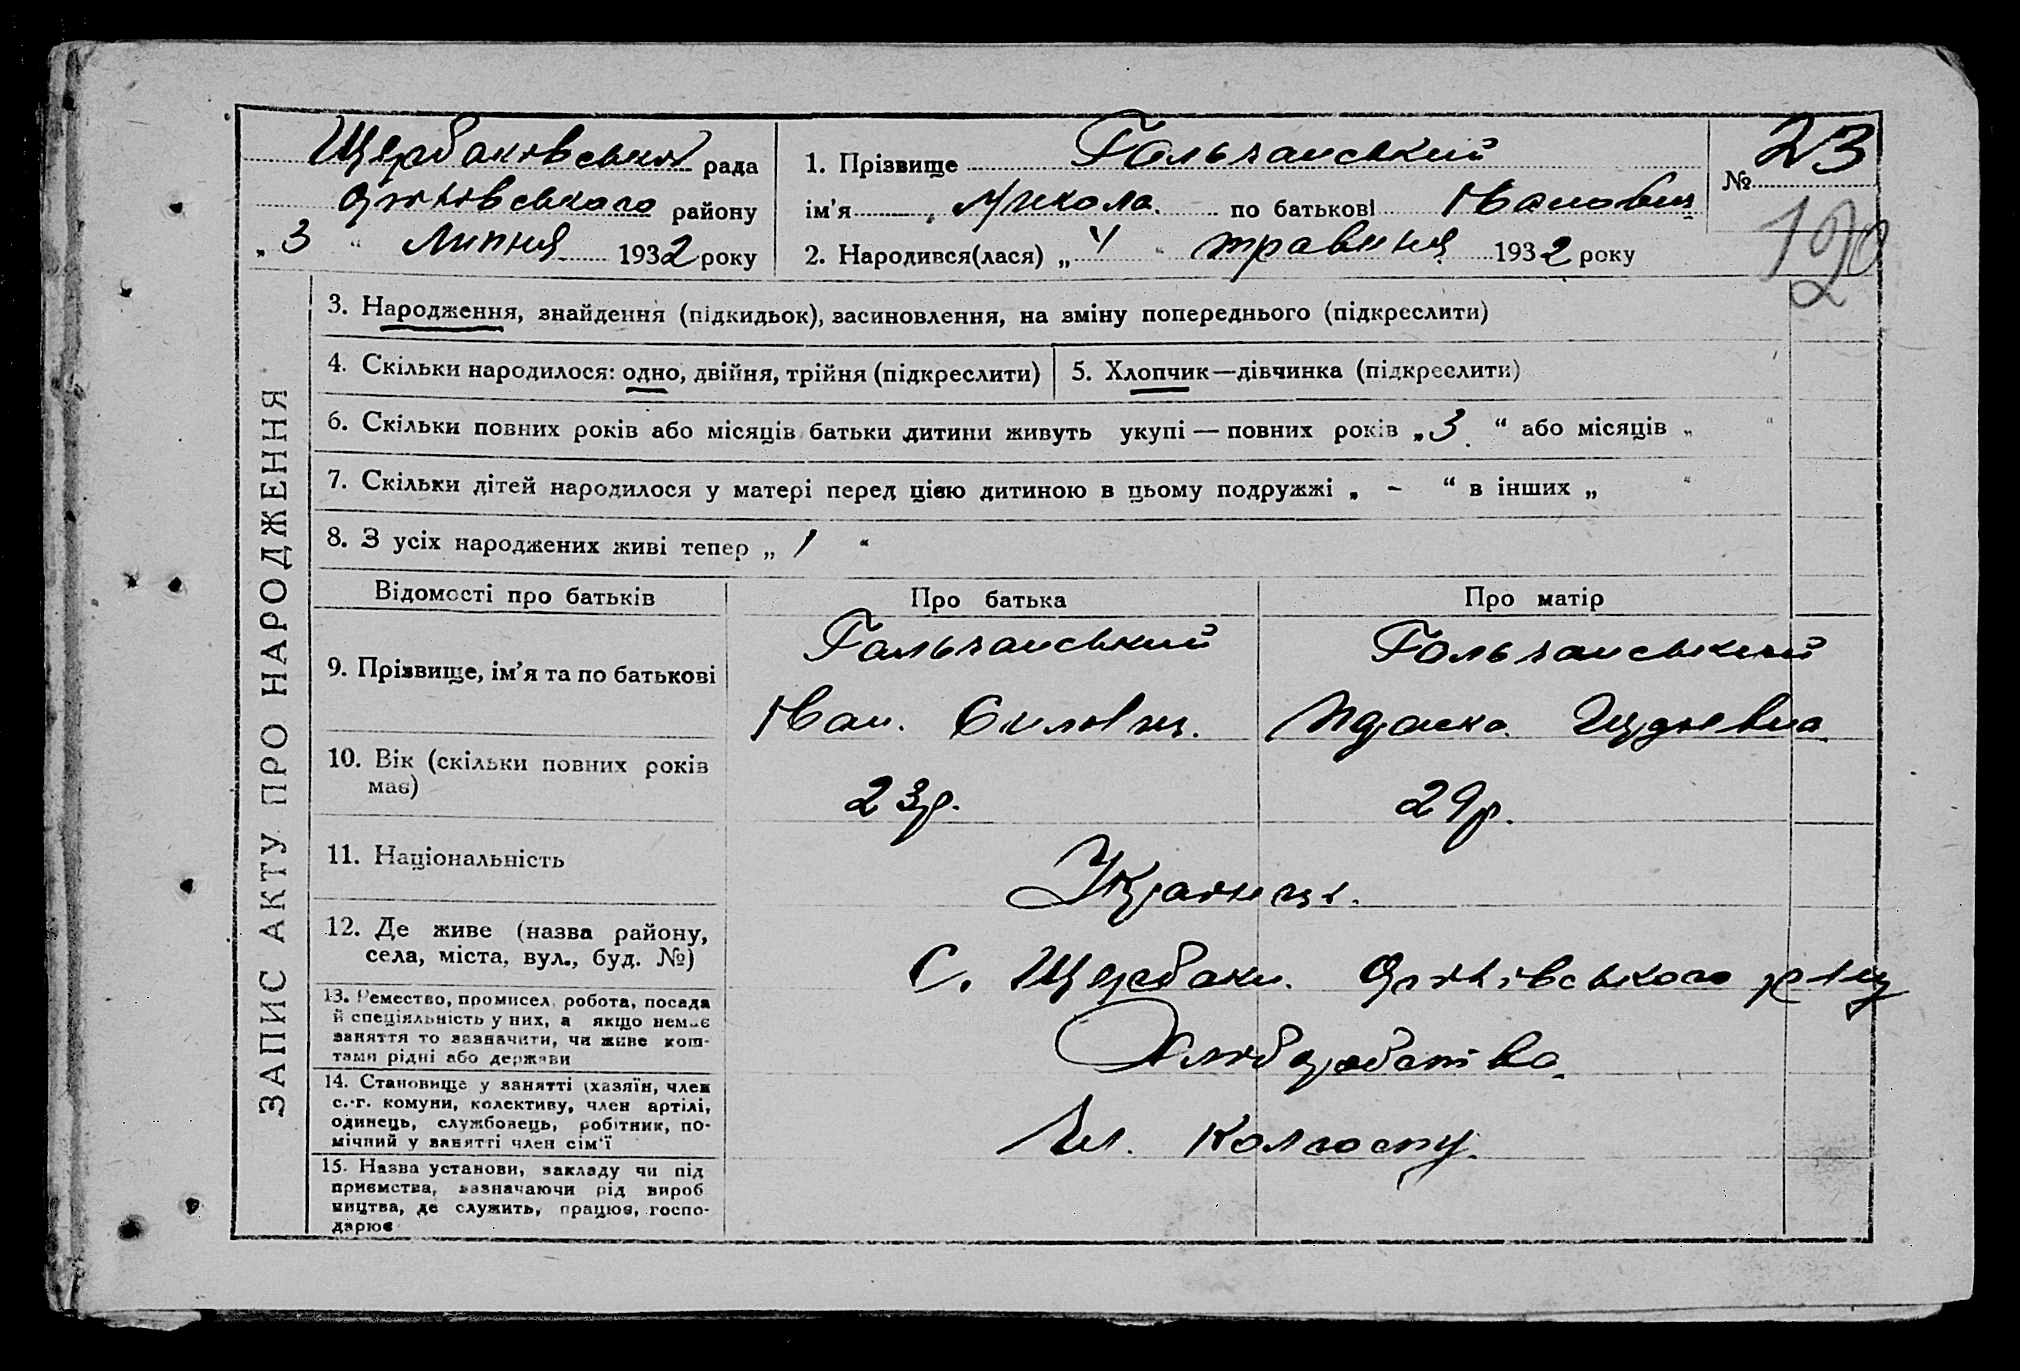 Щербаківська рада
району
„ 3 “ Липня 1932 року
1. Прізвище Гольчанський
ім’я Микола по батькові Іванович
2. Народився(лася) „ 4 “ травиня 1932 року
№ 23
120
ЗАПИС АКТУ ПРО НАРОДЖЕННЯ
3. Народження, знайдення (підкидьок), засиновлення, на зміну попереднього (підкреслити)
4. Скільки народилося: одно, двійня, трійня (підкреслити)
5. Хлопчик—дівчинка (підкреслити)
6. Скільки повних років або місяців батьки дитини живуть укупі — повних років „ 3 “ або місяців „ “
7. Скільки дітей народилося у матері перед цією дитиною в цьому подружжі „ – “ в інших „ “
8. З усіх народжених живі тепер „ 1 “
Відомості про батьків
Про батька
Про матір
9. Прізвище, ім’я та по батькові
Гальчанський
Гольчанський
Іван.
10. Вік (скільки повних років
має)
23р.
29р.
11. Національність
Українці.
12. Де живе (назва району,
села, міста, вул., буд. №)
С. Щербаки. р-ну
13. Ремество, промисел, робота, посада
й спеціяльність у них, а якщо немає
заняття то зазначити, чи живе кош-
тами рідні або держави
Хліборобство
14. Становище у занятті (хазяїн, член
с.-г. комуни, колективу, член артілі,
одинець, службовець, робітник, по-
мічний у занятті член сім’ї
Чл. колгоспу.
15. Назва установи, закладу чи під
приємства, зазначаючи рід вироб
ництва, де служить, працює, госпо-
дарює